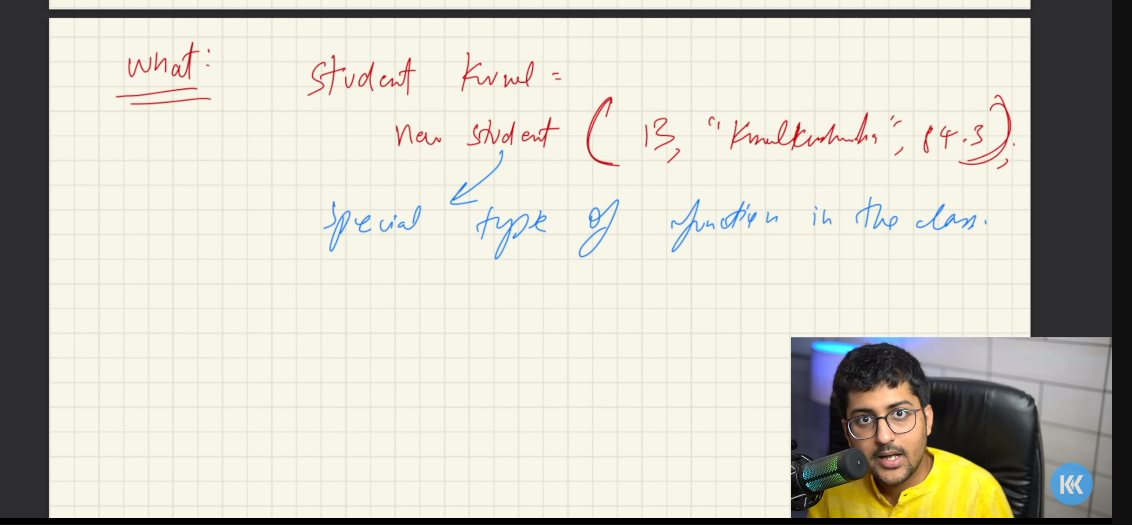 what:
Student Kunal =
new student ( 13, "KunalKushwaha", 84.3);
special type of function in the class.
KK